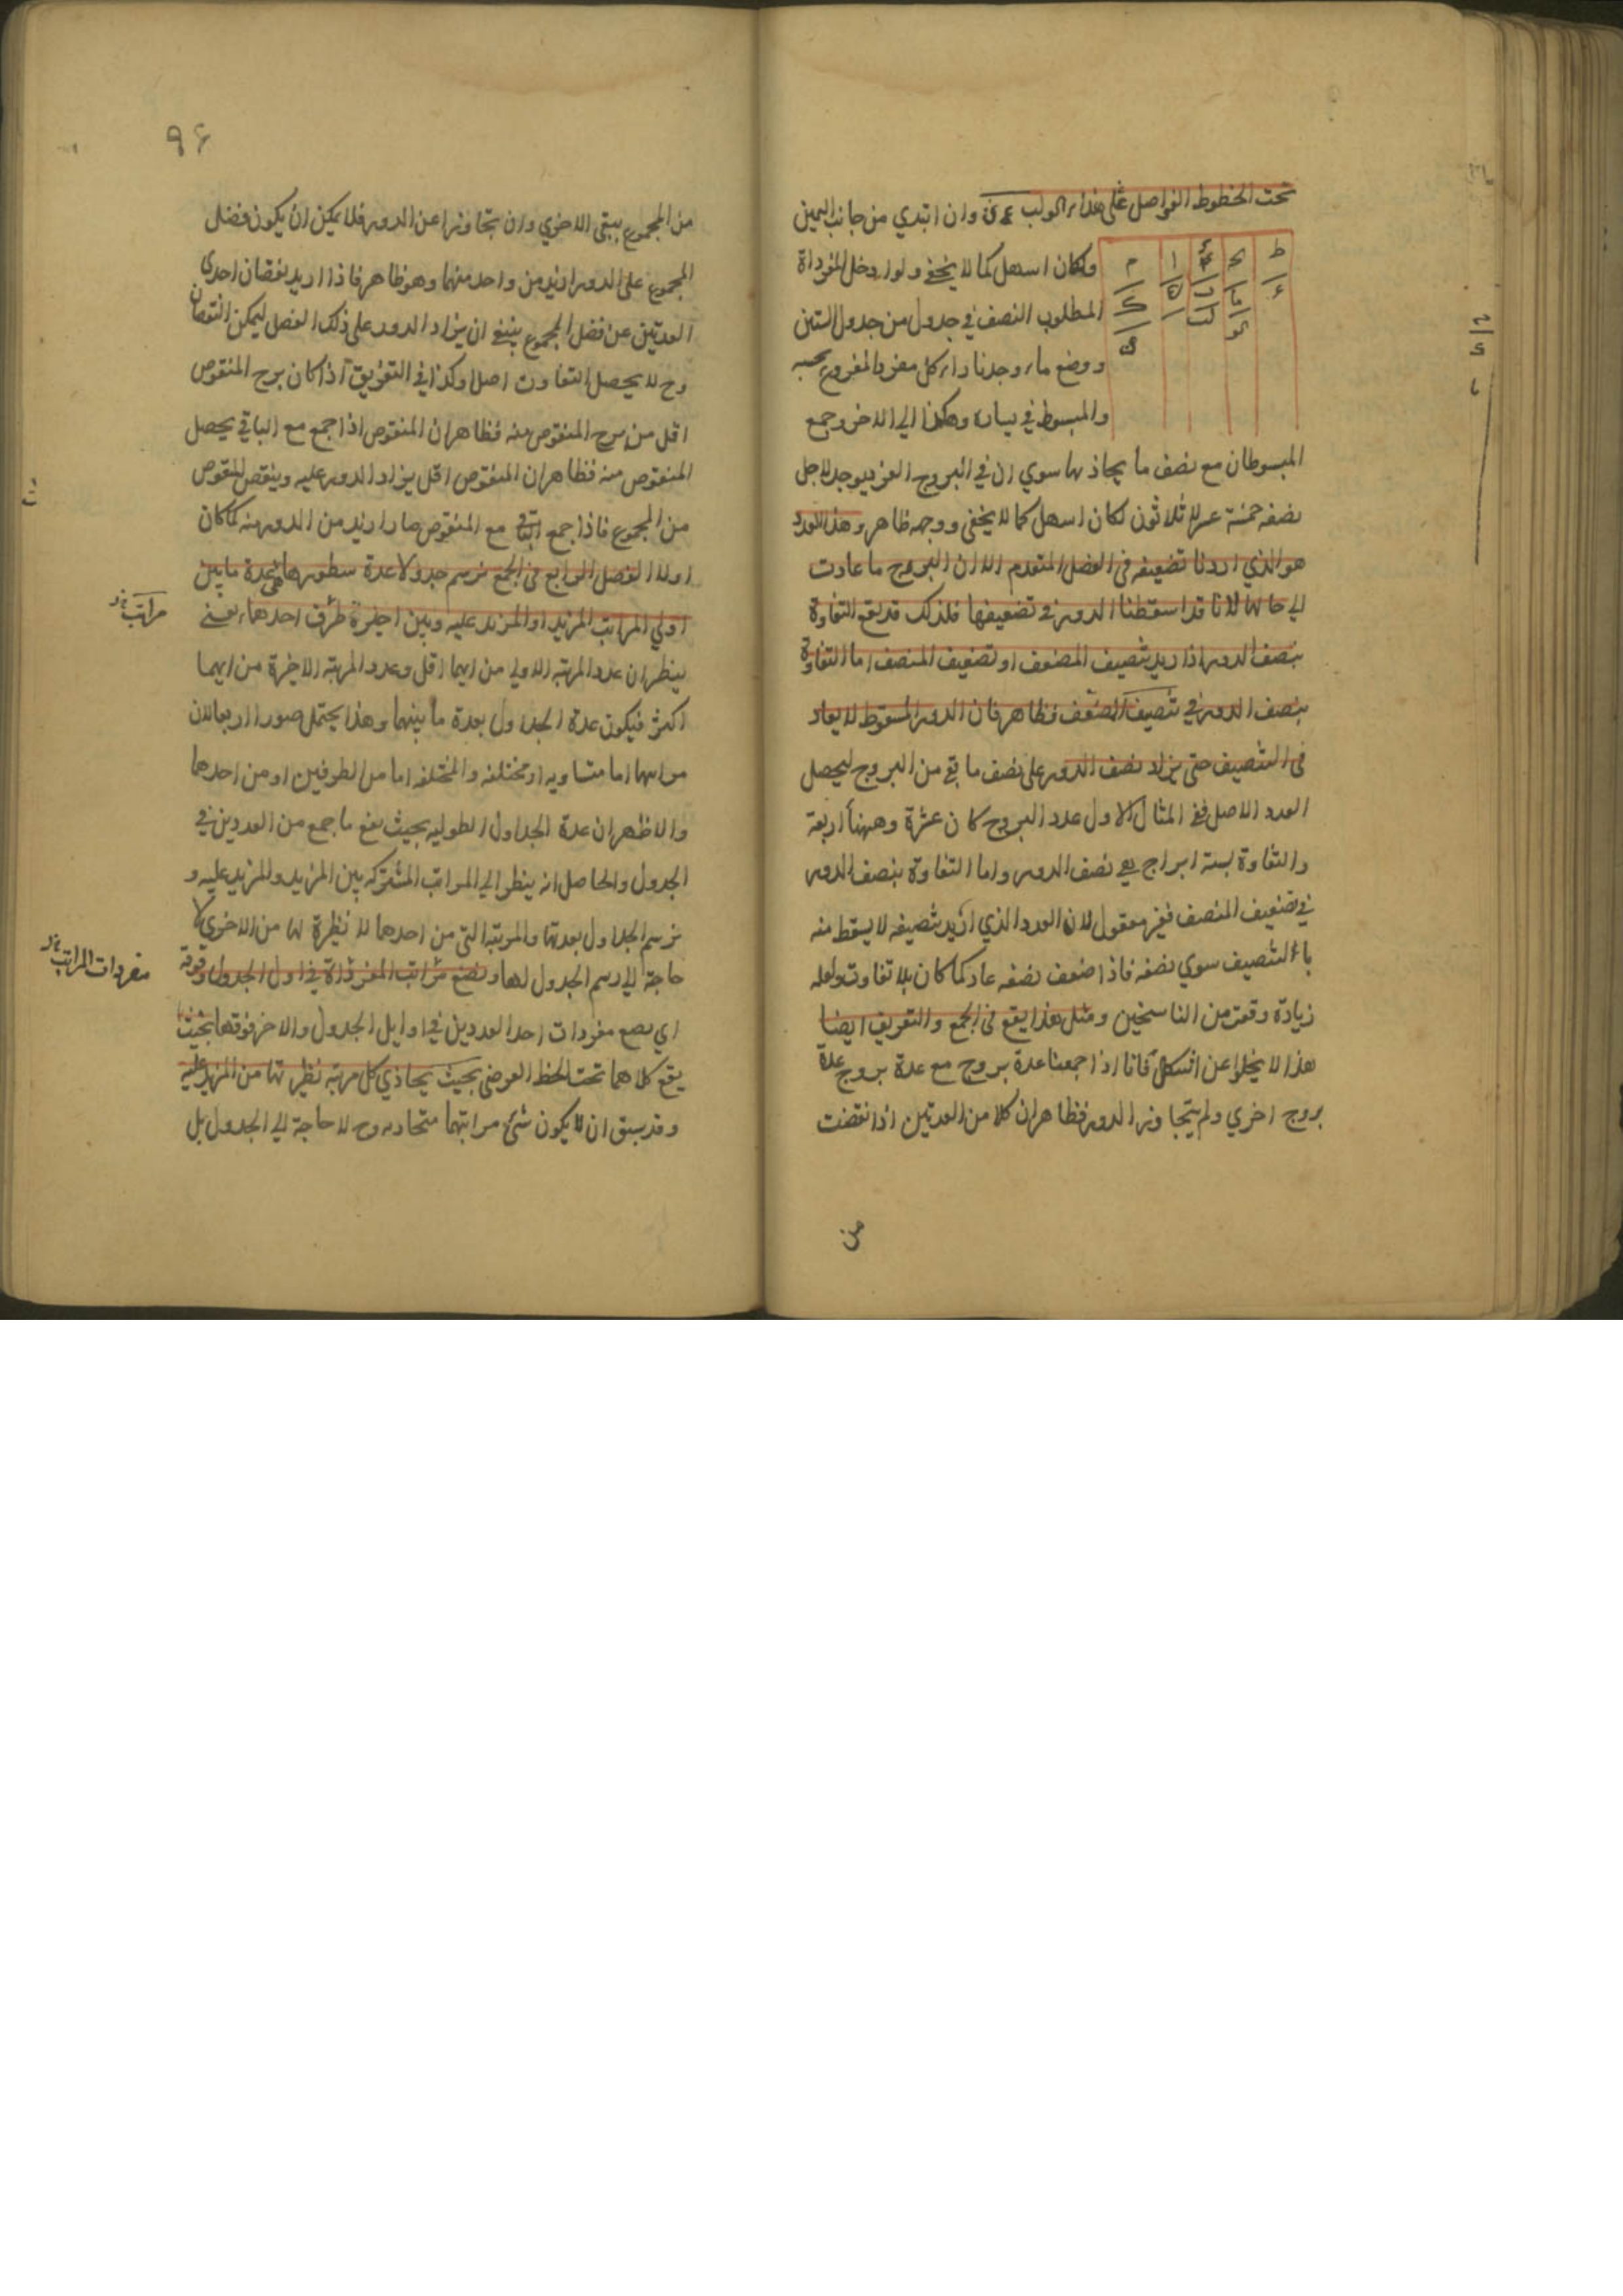 تحت الخطوط الفواصل على هذا وان ابتدي من جانب اليمين
ط ا م
وكان اسهل كما لا يخفى ولو ادخل المفرداة
المطلوب النصف في جدول من جدول الستين
ووضع ما وجدنا كل مفرد المفروع بحبه
والمبسوط في يساره وهكذا الى الاخر وجمع
المبسوطان مع نصف ما يحاذيها سوي ان في البروج الفرد يوجد لاجل
نصفه خمسة عشر لا ثلاثون لكان اسهل كما لا يخفى ووجهه ظاهر وهذا العدد
هو الذي اردنا تضعيفه في الفصل المتقدم الا ان البروج ما عادت
الى حالها لانا قد اسقطنا الدور في تضعيفها فلذلك قد يقع التفاوة
بنصف الدور اذا اريد تنصيف المضعف او تضعيف المنصف اما التفاوة
بنصف الدور في تنصيف المضعف فظاهر فان الدور المسقوط لا يعاد
في التنصيف حتى يزاد نصف الدور على نصف ما بقي من البروج ليحصل
العدد الاصل ففي المثال الاول عدد البروج كان عشرة وههنا اربعة
والتفاوة بستة ابراج هي نصف الدور واما التفاوة بنصف الدور
في تضعيف المنصف فغير معقول لان العدد الذي اريد تنصيفه لا يسقط منه
بالتنصيف سوي نصفه فاذا ضعف نصفه عاد كما كان بلا تفاوت ولعله
زيادة وقعت من الناسخين ومثل هذا يقع في الجمع والتفريق ايضا
هذا لا يخلوا عن اشكال فانا اذا جمعنا عدة بروج مع عدة بروج عدة
بروج اخري ولم يتجاوز الدور فظاهر ان كلا من العدتين اذا نقصت
من
٩٤
من المجموع يبقى الاخري وان تجاوزا عن الدور فلا يمكن ان يكون فضل
المجموع على الدور ازيد من واحد منهما وهو ظاهر فاذا اريد نقصان احدي
العدتين عن فضل المجموع ينبغي ان يزاد الدور على ذلك الفضل ليمكن النقصان
وح لا يحصل التفاوت اصلا وكذا في التفريق اذا كان برج المنقوص
اقل من برج المنقوص منه فظاهر ان المنقوص اذا جمع مع الباقي يحصل
المنقوص منه فظاهر ان المنقوص اقل يزاد الدور عليه وينقص المنقوص
من المجموع فاذا جمع الباقي مع المنقوص صار ازيد من الدور منه كما كان
اولا الفصل الرابع في الجمع نرسم جدولا عدة سطورها عدة ما بين
اولي المراتب المزيد او المزيد عليه وبين اخيرة طرف احدهما يعني
مراتب
ينظر ان عدد المرتبة الاولي من ايهما اقل وعدد المرتبة الاخيرة من ايهما
اكثر فيكون عدة الجداول بعدة ما بينهما وهذا يحتمل صورا اربعا لان
مراتبها اما متساوية او مختلفة والمختلفة اما من الطرفين او من احدهما
والاظهر ان عدة الجداول الطولية بحيث يقع ما جمع من العددين في
الجدول والحاصل انه ينظر الى المراتب المشتركة بين المزيد والمزيد عليه و
نرسم الجداول بعدتها والمرتبة التي من احدهما لا نظيرة لها من الاخري لا
حاجة الى رسم الجدول لها ونضع مراتب المفرداة في اول الجدول وفوقه
مفردات المراتب
اي يضع مفردات احد العددين في اوايل الجدول والاخر فوقها بحيث
يقع كلاهما تحت الخط العرضي بحيث يحاذي كل مرتبة نظيرتها من المزيد عليه
وقد سبق ان لا يكون شئ مراتبهما متحاديه وح لا حاجة الى الجدول بل